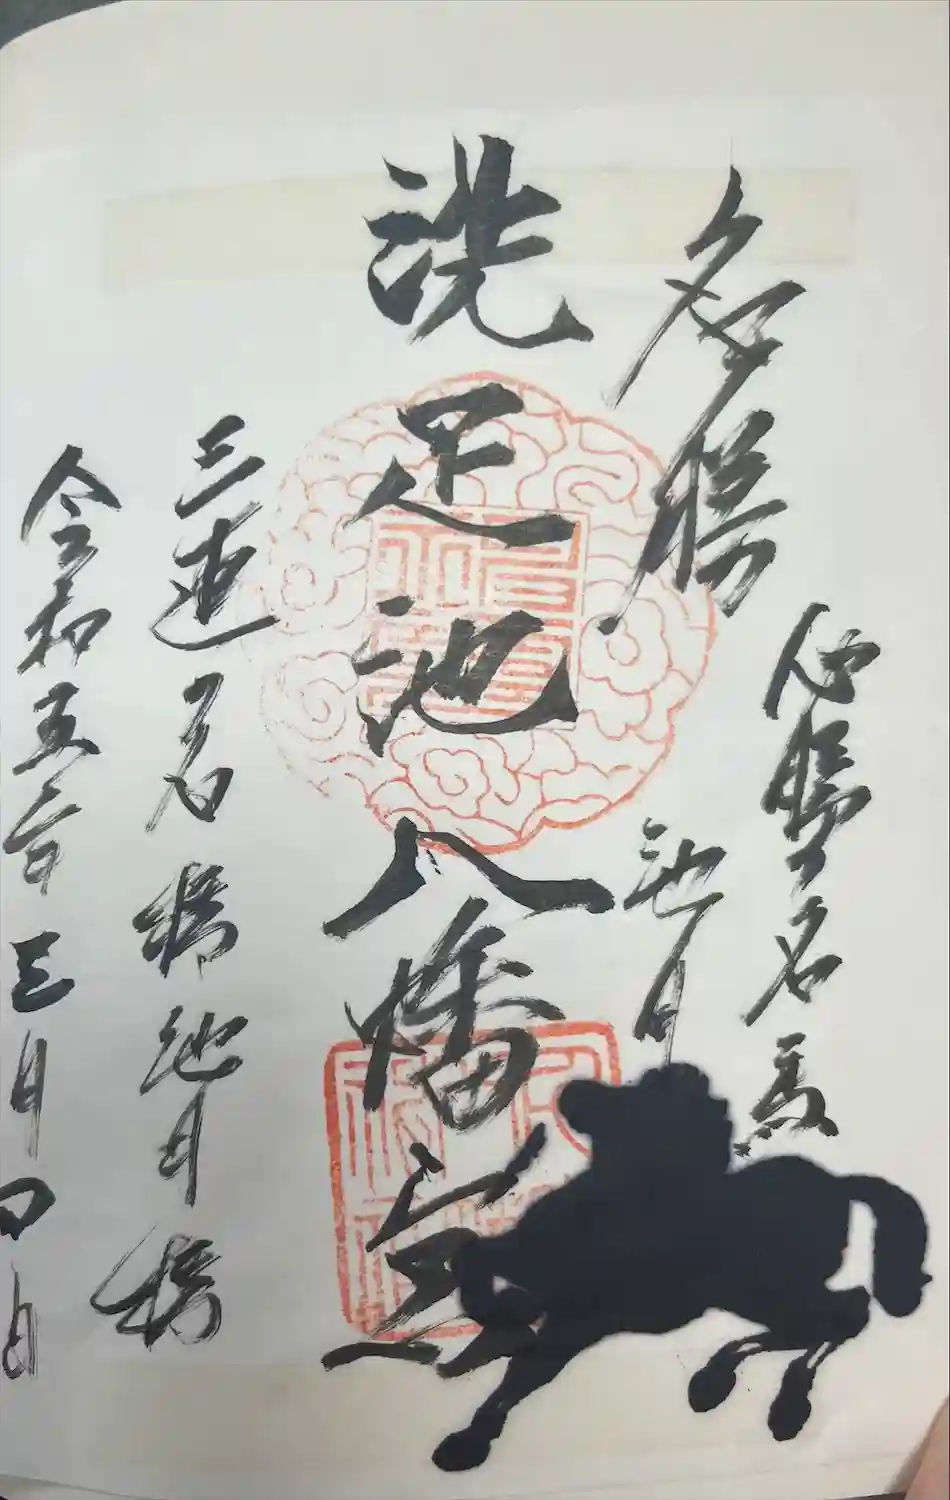 必勝名馬
名勝
池月
洗足池八幡宮
三連名橋池月橋
令和五年三月四日